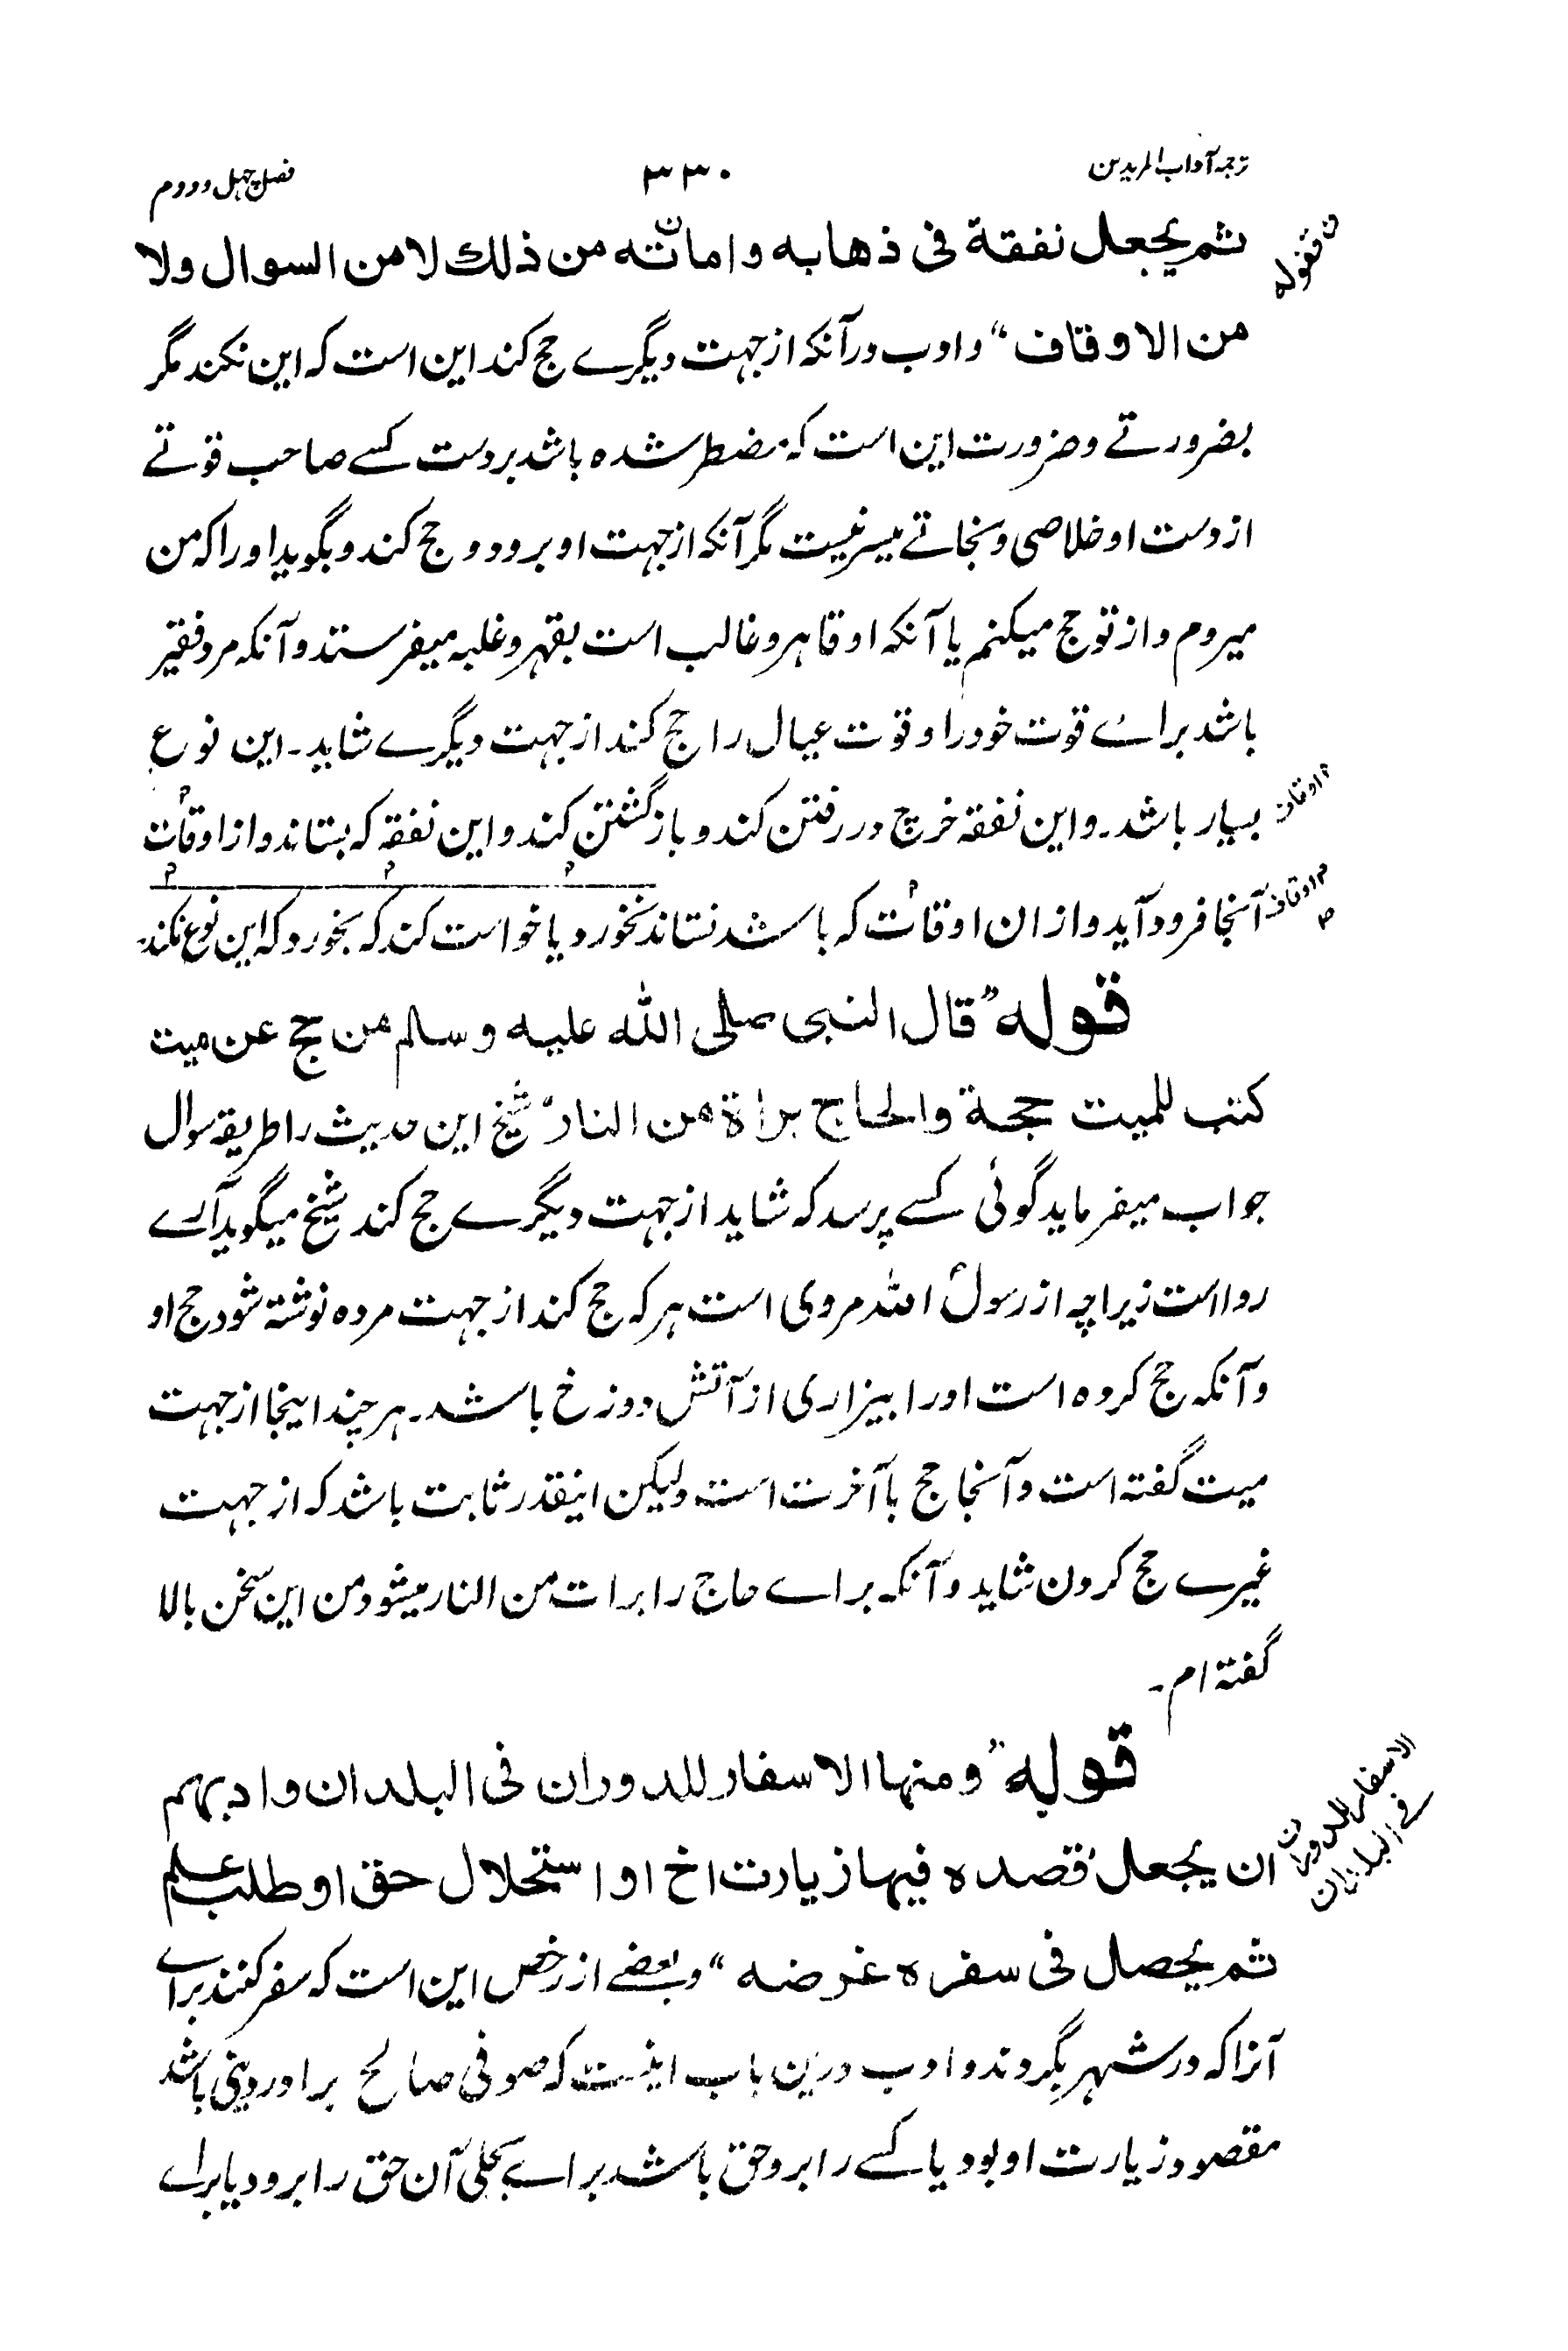 ترجمہ آداب المریدین
۳۳۰
فصل چہل و دوم
ثم یجعل نفقة فی ذهابه و اماتته من ذلك لا من السوال ولا
من الاوقاف“ و ادب در آنکہ از جہت دیگرے حج کند این است کہ این نکند مگر
بضرورتے و ضرورت این است کہ مضطر شدہ باشد بر دست کسے صاحب قوتے
از دست او خلاصی و نجاتے میسر نیست مگر آنکہ از جہت او برود و حج کند و بگوید او را کہ من
میروم و از تو حج میکنم یا آنکہ او قاہر و غالب است بقہر و غلبہ میفرستند و آنکہ مرد فقیر
باشد براے قوت خود را و قوت عیال را حج کند از جہت دیگرے شاید۔ این نوع
بسیار باشد۔ و این نفقہ خرچ در رفتن کند و باز گشتن کند و این نفقہ کہ بستاند و از اوقات
آنجا فرود آید و از ان اوقات کہ باشد نستاند نخورد یا خواست کند کہ بخورد کہ این نوع نکند
قوله ”قال النبی صلی اللہ علیه وسلم من حج عن میت
کتب للمیت حجة والحاج براة من النار“ شیخ این حدیث را طریقہ سوال
جواب میفرماید گوئی کسے پرسد کہ شاید از جہت دیگرے حج کند شیخ میگوید آرے
روا است زیراچہ از رسولؐ اللہ مروی است ہر کہ حج کند از جہت مردہ نوشتہ شود حج او
و آنکہ حج کردہ است او را بیزاری از آتش دوزخ باشد۔ ہرچند اینجا از جہت
میت گفتہ است و آنجا حج با آخرت است ولیکن اینقدر ثابت باشد کہ از جہت
غیرے حج کردن شاید و آنکہ براے حاج را برات من النار میشود من این سخن بالا
گفتہ ام۔
قوله ”و منها الاسفار للدوران فی البلدان و ادبهم
ان یجعل قصده فیها زیارت اخ او استحلال حق او طلب علم
ثم یحصل فی سفره غرضه“ و بعضے از رخص این است کہ سفر کنند براے
آنرا کہ در شہر بگردند و ادب درین باب اینست کہ صوفی صالح برادر دینی باشد
مقصود زیارت او بود یا کسے را برو حق باشد براے بحلی آن حق را برود یا براے
ن نقوله
م اوقاف
م اوقاف
الاسفار للدوران
فی البلدان